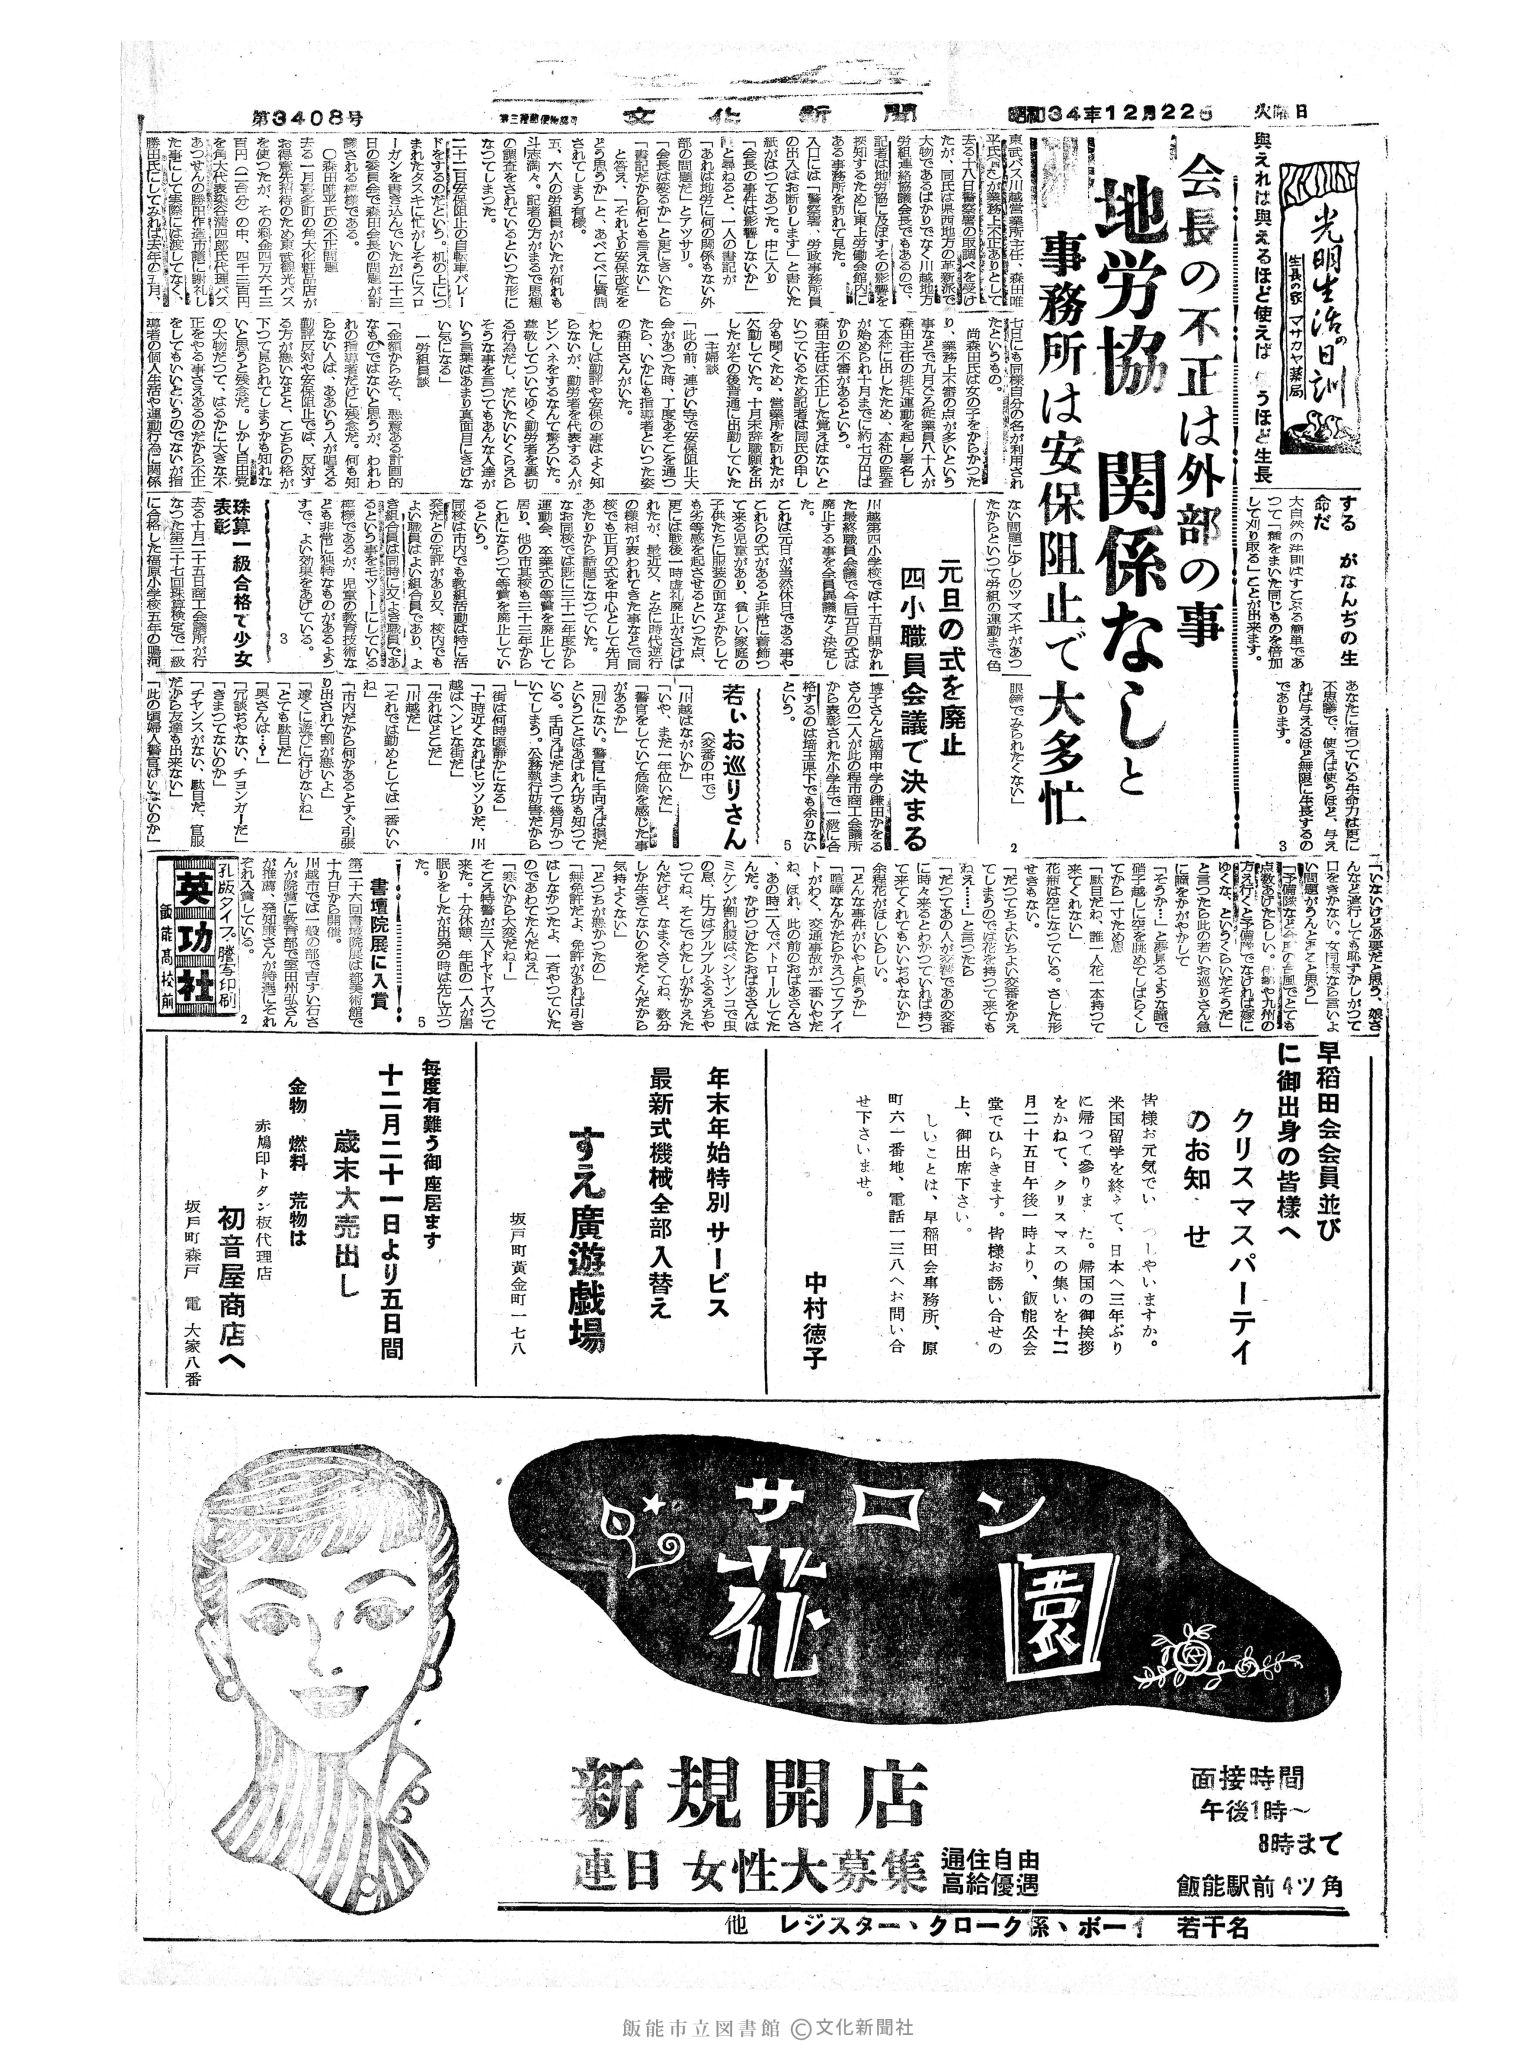 第3408号
第三種郵便物認可
文化新聞
昭和34年12月22日
火曜日
光明生活の日訓
生長の家 マサカヤ薬局
與えれは與えるほど使えば
うほど生長
する
がなんぢの生
命だ
大自然の法則はすこぶる簡単であ
つて「種をまいた同じものを倍加
して刈り取る」ことが出来ます。
あなたに宿つている生命力は更に
不思議で、使えば使うほど、与え
れば与えるほど無限に生長するの
であります。
3
会長の不正は外部の事
地労協 関係なしと
事務所は安保阻止で大多忙
東武バス川越営業所主任、森田唯
平氏
が業務上不正ありとして
去る十八日警察署の取調べを受け
たが、同氏は県西地方の革新派で
大物であるばかりでなく川越地方
労組連絡協議会長でもあるので、
記者は地労協に及ぼすその影響を
探知するために東上労働会館内に
ある事務所を訪れて見た。
入口には「警察署、労政事務所員
の出入はお断りします」と書いた
紙がはつてあつた。中に入り
「会長の事件は影響しないか」
と尋ねると、一人の書記が
「あれは地労に何の関係もない外
部の問題だ」とアツサリ。
「会長は変るか」と更にきいたら
「書記だから何とも言えない」
と答え、「それより安保改定を
どう思うか」と、あべこべに質問
されてしまう有様。
五、六人の労組員がいたが何れも
斗志満々。記者の方がまるで思想
の調査をされているといつた形に
なつてしまつた。
二十二日安保阻止の自転車パレー
ドをするのだという。机の上につ
まれたタスキに忙がしそうにスロ
ーガンを書き込んでいたが二十三
日の委員会で森田会長の問題が討
議される模様である。
〇森田唯平氏の不正問題
去る一月喜多町の角大化粧品店が
お得意先招待のため東武観光バス
を使つたが、その料金四万六千三
百円(二台分)の中、四千三百円
を角大代表染谷清四郎氏代理バス
あつせんの勝田作造市議に謝礼し
た事にして実際には渡してなく、
勝田氏にしてみれば去年の五月、
七日にも同様自分の名が利用され
たというもの。
尚森田氏は女の子をからかつた
り、業務上不審の点が多いという
事などで九月ごろ従業員八十人が
森田主任の排斥運動を起し署名し
て本社に出したため、本社の監査
が始められ十月までに約七万円ば
かりの不審があるという。
森田主任は不正した覚えはないと
いつているため記者は同氏の申し
分も聞くため、営業所を訪れたが
欠勤していた。十月末辞職願を出
したがその後普通に出勤していた
一主婦談
「此の前、連けい寺で安保阻止大
会があつた時、丁度あそこを通つ
たら、いかにも指導者といつた姿
の森田さんがいた。
わたしは勤評や安保の事はよく知
らないが、勤労者を代表する人が
ピンハネをするなんて驚ろいた。
尊敬してついてゆく勤労者を裏切
る行為だし、だいたいいくらえら
そうな事を言つてもあんな人達が
いう言葉はあまり真面目にきけな
い気になる」
一労組員談
「金額からみて、悪意ある計画的
なものではないと思うが、われわ
れの指導者だけに残念だ。何も知
らない人は、ああいう人が唱える
勤評反対や安保阻止では、反対す
る方が悪いなどと、こちらの格が
下つて見られてしまうかも知れな
いと思うと残念だ。しかし自由党
の大物だつて、はるかに大きな不
正をやる事さえあるのだから不正
をしてもいいというのでないが指
導者の個人生活や運動行為に関係
ない問題に少しのツマズキがあつ
たからといつて労組の運動まで色
眼鏡でみられたくない」
2
元旦の式を廃止
四小職員会議で決まる
川越第四小学校では十五日開かれ
た最終職員会議で今后元旦の式は
廃止する事を全員異議なく決定し
た。
これは元日が当然休日である事や
これらの式があると非常に着飾つ
て来る児童があり、貧しい家庭の
子供たちに服装の面などからして
も劣等感を起させるといつた点、
更には戦後一時虚礼廃止がさけば
れたが、最近又、とみに時代逆行
の様相が表われてきた事などで同
校でも正月の式を中心として先月
あたりから話題になつていた。
なお同校では既に三十二年度から
運動会、卒業式の等賞を廃止して
居り、他の市其校も三十三年から
これにならつて等賞を廃止してい
るという。
同校は市内でも教組活動は特に活
発だとの定評があり又、校内でも
よい職員はよい組合員であり、よ
き組合員は同時に又よき職員であ
るという事をモツトーにしている
模様であるが、児童の教育技術な
ども非常に独特なものがあるよう
すで、よい効果をあげている。
3
珠算一級合格で少女
表彰
去る十月二十五日商工会議所が行
なつた第三十七回珠算検定で一級
に合格した福原小学校五年の鳴河
博子さんと城南中学の鎌田かをる
さんの二人が此の程市商工会議所
から表彰された小学生で一級に合
格するのは埼玉県下でも余りない
という。
5
若いお巡りさん
(交番の中で)
「川越はながいか」
「いや、まだ一年位いだ」
「警官をしていて危険を感じた事
があるか」
「別にない。警官に手向えば損だ
ということはあばれん坊も知つて
いる。手向えばだまつて幾月かつ
いてしまう。公務執行妨害だから
「街は何時頃静かになる」
「十時近くなればヒツソリだ、川
越はヘンピな街だ」
「生れはどこだ」
「川越だ」
「それでは勤めとしては一番いい
ね」
「市内だから何かあるとすぐ引張
り出されて割が悪いよ」
「遠くに遊びに行けないね」
「とても駄目だ」
「奥さんは…?」
「冗談ぢやない、チョンガーだ」
「きまつてないのか」
「チヤンスがない、駄目だ、官服
だから友達も出来ない」
「此の頃婦人警官はいないのか」
「いないけど必要だと思う、娘さ
んなど遊行しても恥ずかしがつて
口をきかない。女同志なら言いよ
い問題がうんとあると思う」
「予備隊など全国の台風でとても
点数あげたらしい。伊勢や九州の
方え行くと予備隊でなければ嫁に
ゆくな、というくらいだそうだ」
と言つたら此の若いお巡りさん急
に瞳をかがやかして
「そうか…」と夢見るような瞳で
硝子越しに空を眺めてしばらくし
てから一寸ため息
「駄目だわ、誰一人花一本持つて
来てくれない」
花瓶は空になつている。さした形
せきがない。
「だつてちよいちよい交番をかえ
てしまうのでは花を持つて来ても
ねえ…」と言つたら
「だつてあの人が交番であの交番
に時々来るとわかつていれば持つ
て来てくれてもいいぢやないか」
余程花がほしいらしい。
「どんな事件がいやと思うか」
「喧嘩なんかだらかえつてフアイ
トがわく、交通事故が一番いやだ
ね、ほれ、此の前のおばあさんさ
、あの時二人でパトロールしてた
んだ。かけつけたらおばあさんは
ミケンが割れ腹はペシヤンコで虫
の息、片方はブルブルふるえちや
つてね、そこでわたしがかかえた
んだけど、なまぐさくてね、数分
しか生きてないのをだくんだから
気持よくない」
「どつちが悪かつたの」
「無免許だよ、免許があれば引き
はしなかつたよ、一斉やつていた
のであわてたんだねえ」
「寒いから大変だねー」
そこえ特警が三人ドヤドヤ入つて
来た。十分休憩、年配の一人が居
眠りをしたが出発の時は先に立つ
た。
5
書壇院展に入賞
第二十六回書壇院展は都美術館で
十九日から開催。
川越市では一般の部で吉すい石さ
んが院賞に教育部で室田州弘さん
が推薦、発知廉さんが特選にそれ
ぞれ入賞している。
2
孔版タイプ・騰写印刷
英功社
飯能高校前
早稲田会会員並び
に御出身の皆様へ
クリスマスパーテイ
のお知 せ
皆様お元気でい つしやいますか。
米国留学を終えて、日本へ三年ぶり
に帰つて參りま た。帰国の御挨拶
をかねて、クリスマスの集いを十二
月二十五日午後一時より、飯能公会
堂でひらきます。皆様お誘い合せの
上、御出席下さい。
しいことは、早稲田会事務所、原
町六一番地、電話一三八へお問い合
せ下さいませ。
中村徳子
年末年始特別サービス
最新式機械全部入替え
すえ廣遊戯場
坂戸町黃金町一七八
毎度有難う御座居ます
十二月二十一日より五日間
歳末大売出し
金物 燃料 荒物は
赤鳩印トタン板代理店
初音屋商店へ
坂戸町森戸 電 大家八番
サロン
花園
新規開店
連日 女性大募集
通住自由
高給優遇
面接時間
午後1時〜
8時まで
飯能駅前4ツ角
他 レジスター、クローク係、ボーイ 若干名
飯能市立図書館 ©文化新聞社